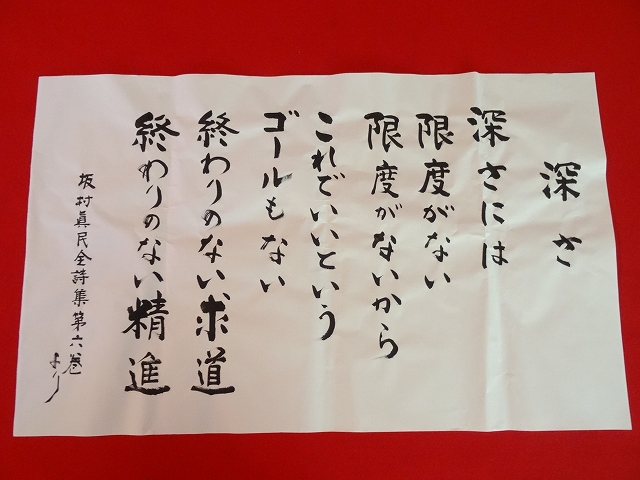 深さ
深さには
限度がない
限度がないから
これでいいという
ゴールもない
終わりのない求道
終わりのない精進
坂村眞民全詩集第六巻
より